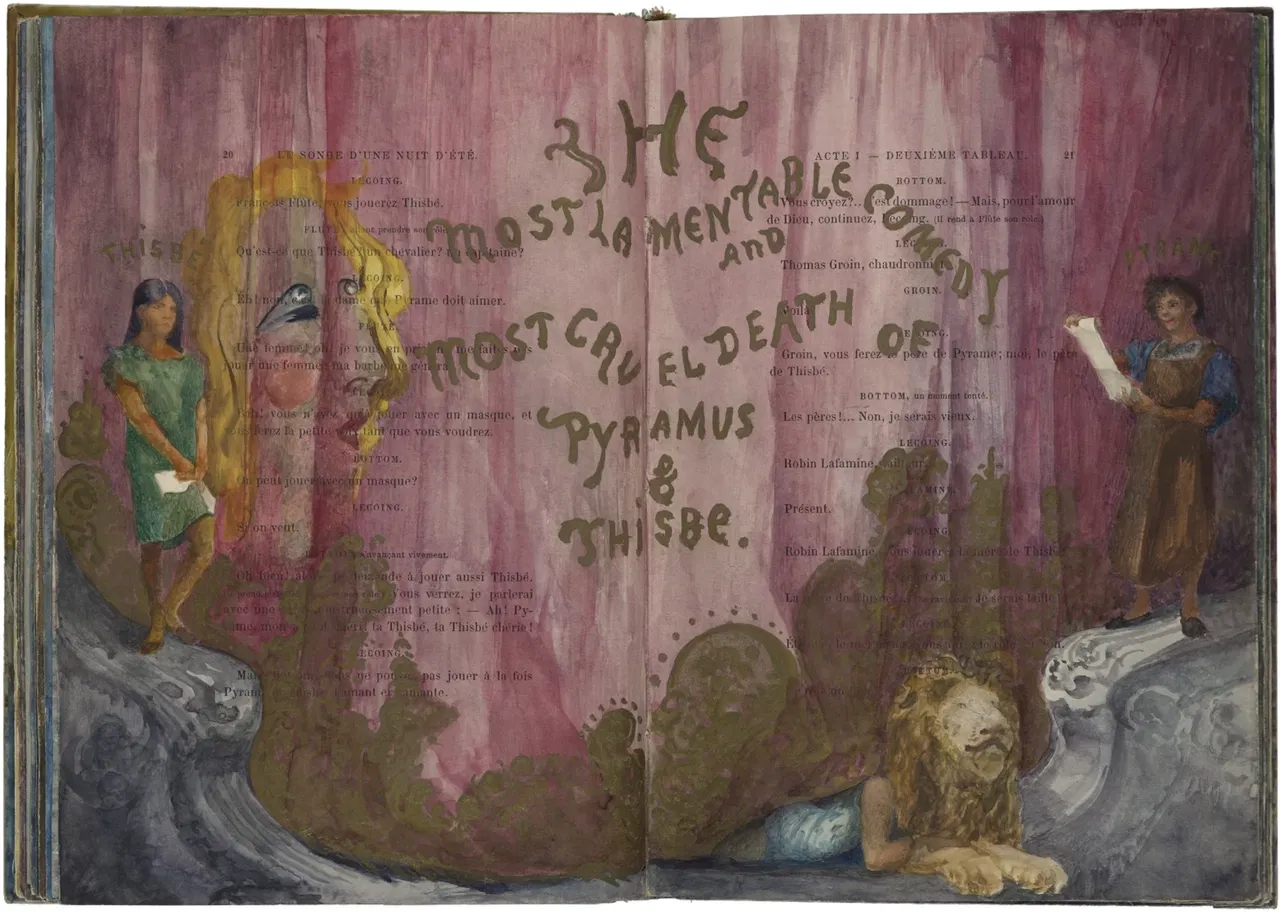 THE
MOST LAMENTABLE COMEDY
AND
MOST CRUEL DEATH OF
PYRAMUS
&
THISBE.
THISBE
PYRAM
20 LE SONGE D'UNE NUIT D'ÉTÉ.
LECOING.
François Flûte, vous jouerez Thisbé.
FLUTE, allant prendre son rôle.
Qu'est-ce que Thisbé? un chevalier? un capitaine?
LECOING.
Eh! non, c'est la dame que Pyrame doit aimer.
FLUTE.
Une femme! oh! je vous en prie, ne me faites pas
jouer une femme; ma barbe me gêne
LECOING.
Bah! vous n'avez qu'à jouer avec un masque, et
vous ferez la petite voix tant que vous voudrez.
BOTTOM.
On peut jouer avec un masque?
LECOING.
Si on veut.
BOTTOM, s'avançant vivement.
Oh bien! alors, je demande à jouer aussi Thisbé.
Vous verrez, je parlerai
avec une petite : — Ah! Py-
rame, mon chéri, ta Thisbé, ta Thisbé chérie!
LECOING.
Mais vous ne pouvez pas jouer à la fois
Pyrame et Thisbé, l'amant et l'amante.
ACTE I — DEUXIÈME TABLEAU. 21
BOTTOM.
Vous croyez?.. C'est dommage! — Mais, pour l'amour
de Dieu, continuez, Lecoing. (Il rend à Flûte son rôle.)
LECOING.
Thomas Groin, chaudronnier
GROIN.
Voilà
LECOING.
Groin, vous ferez le père de Pyrame; moi, le père
de Thisbé.
BOTTOM, un moment tenté.
Les pères!... Non, je serais vieux.
LECOING.
Robin Lafamine, tailleur.
LAFAMINE.
Présent.
LECOING.
Robin Lafamine, vous jouerez la mère de Thisbé.
BOTTOM.
La mère de Thisbé je serais
LECOING.